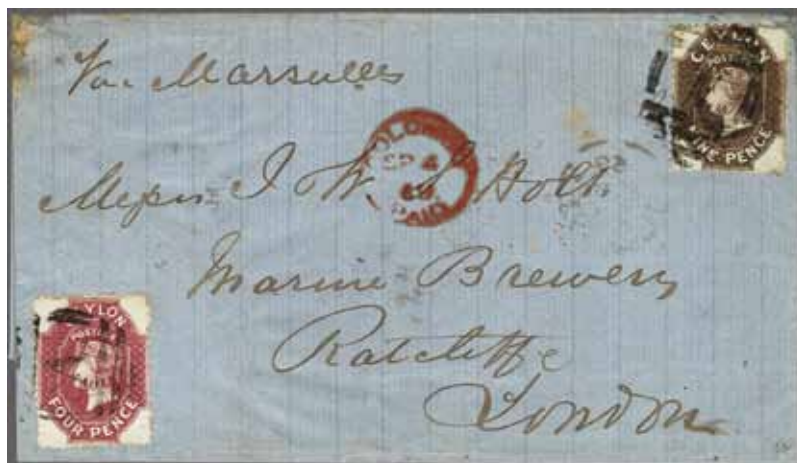 Via Marseilles
CEYLON
POSTAGE
NINE PENCE
COLOMBO
SP 4
PAID
Messrs J W & S Holt
Marine Brewery
Ratcliffe
London
CEYLON
POSTAGE
FOUR PENCE